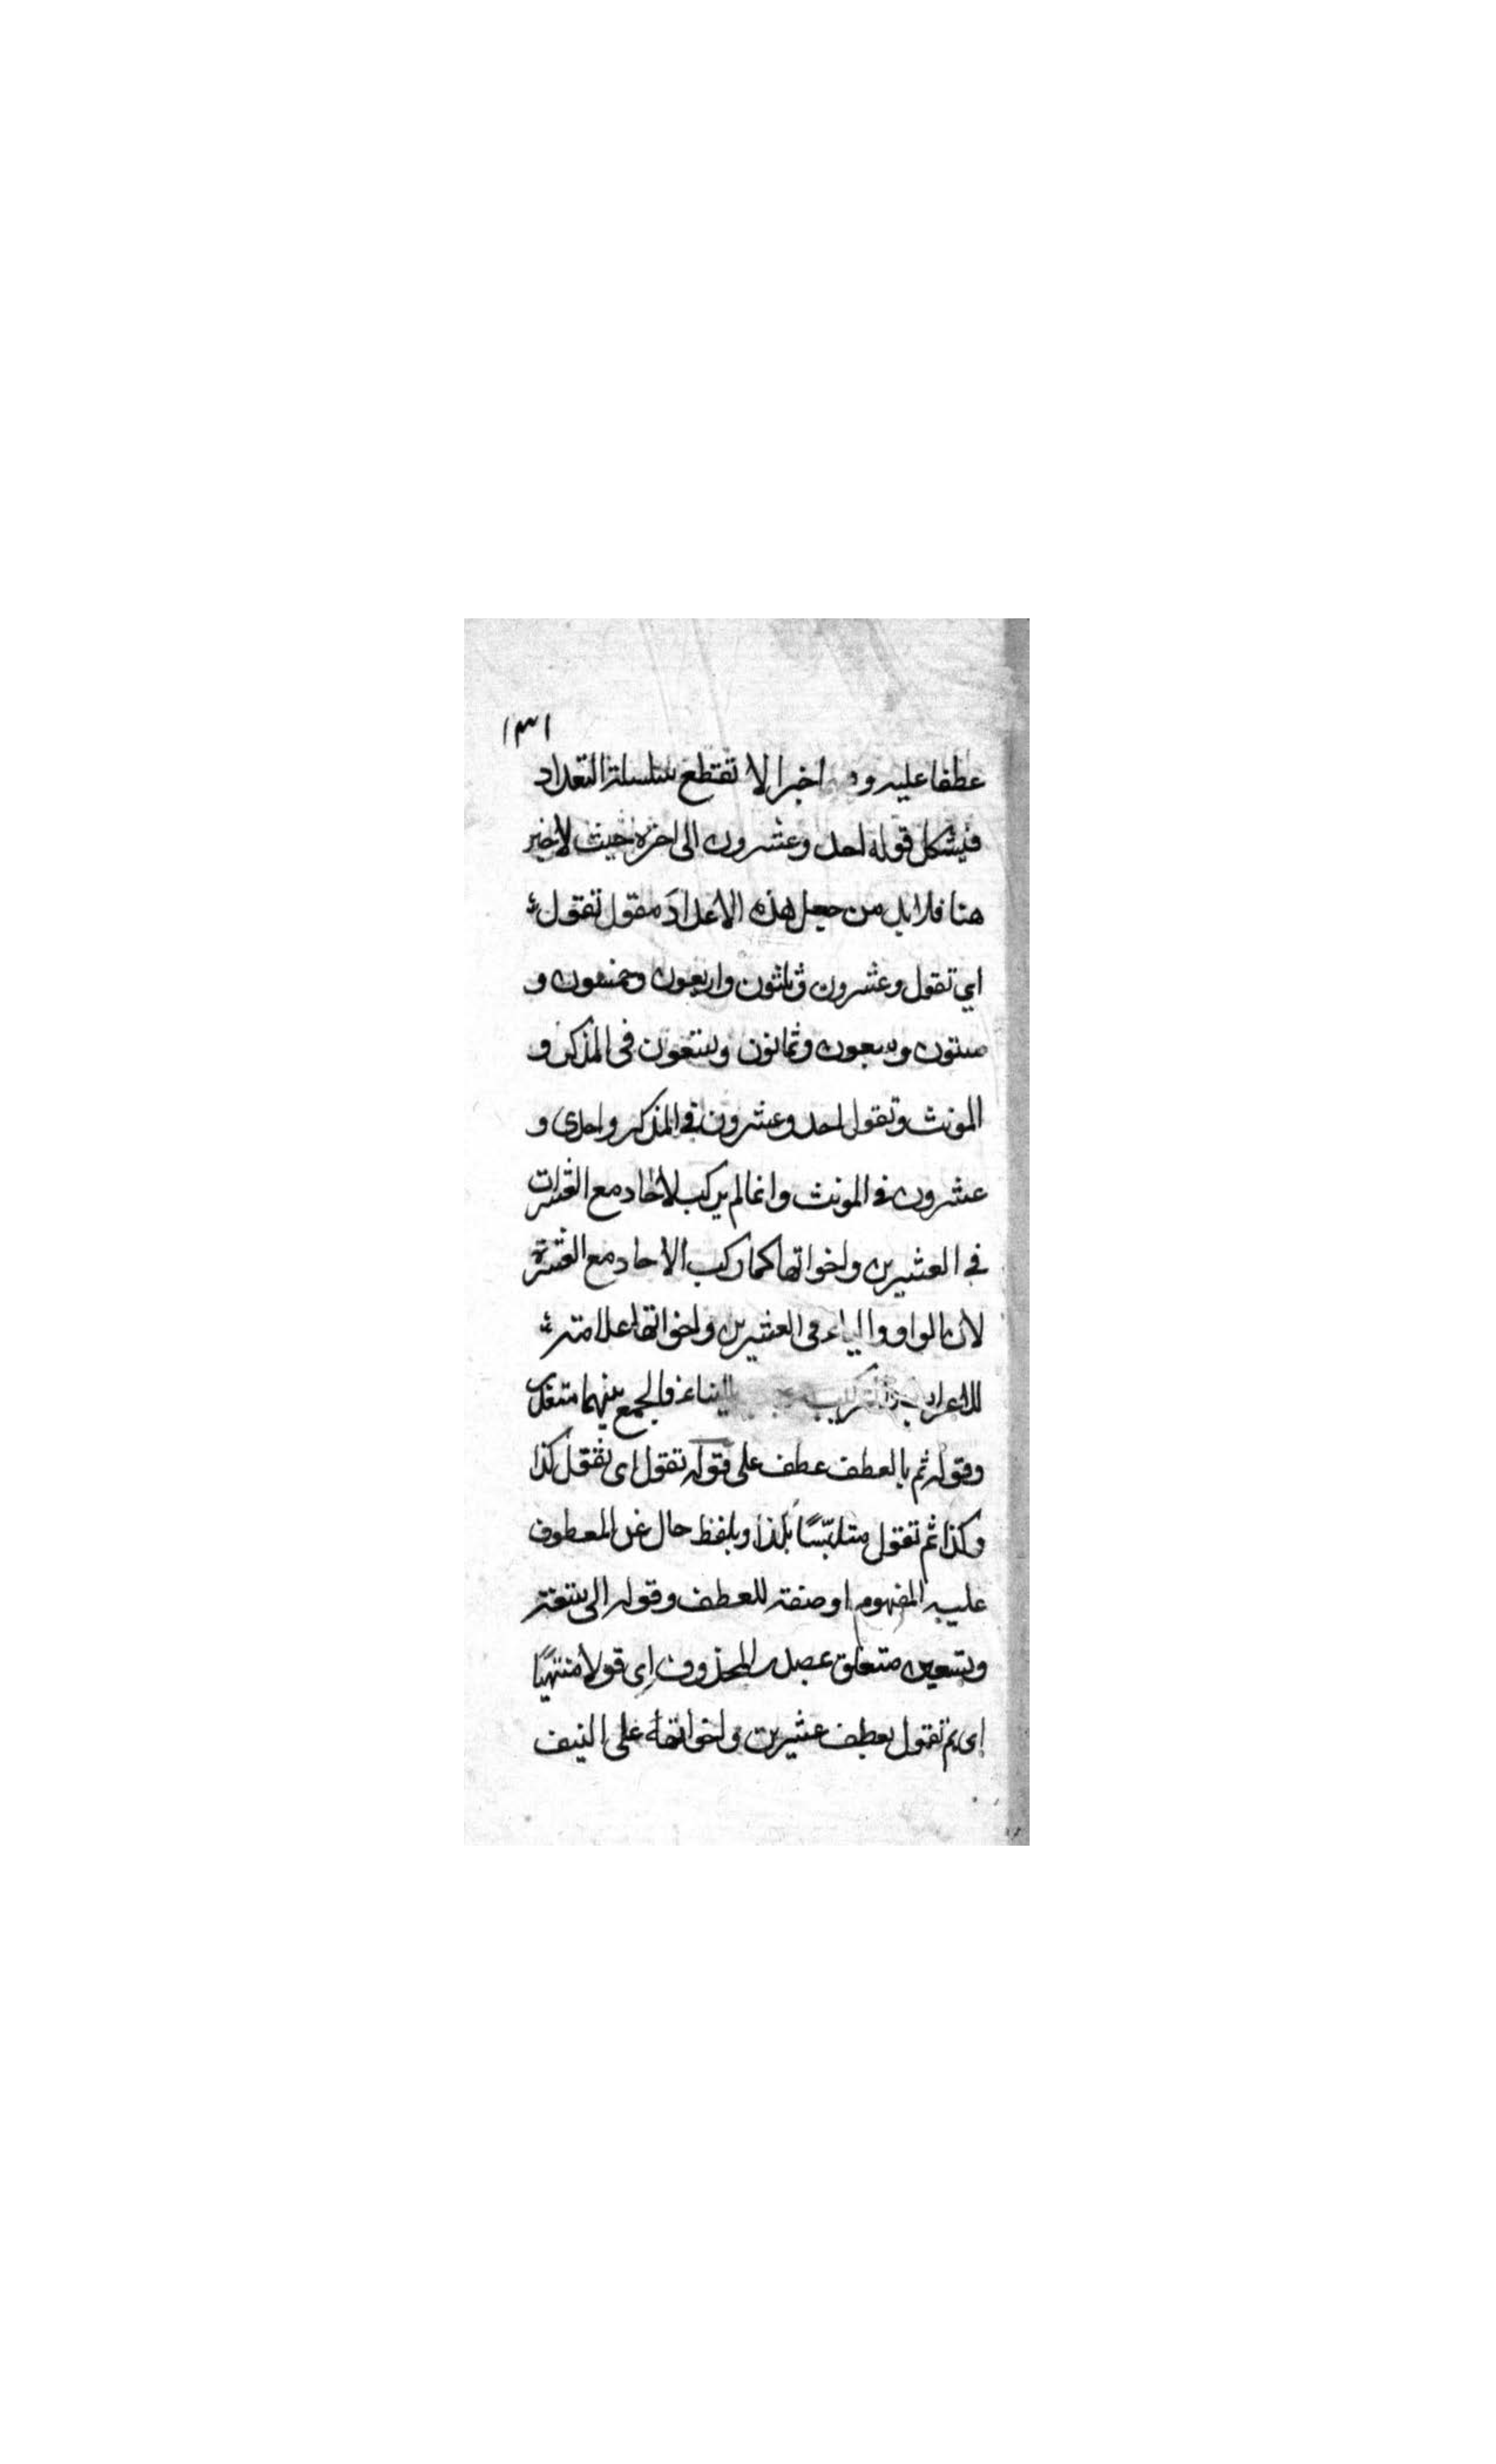 ١٣١
عطفا عليه و اخبرا لا تقطع سلسلة التعداد
فيشكل قوله احد وعشرون الى اخره حيث لا خبر
هنا فلا بد من جعل هذه الاعداد مقول تقول
اي تقول وعشرون وثلثون واربعون وخمسون و
ستون وسبعون وثمانون وتسعون فى المذكر و
المونث وتقول احد وعشرون فى المذكر واحدى و
عشرون فى المونث وانما لم يركب الاحاد مع العشرات
فى العشرين واخواتها كما ركب الاحاد مع العشرة
لان الواو والياء فى العشرين واخواتها علامة
للاعراب والتركيب البناء فالجمع بينهما متعذر
وقوله ثم بالعطف عطف على قوله تقول اى تقول كذا
وكذا ثم تقول متلبّسًا بكذا وبلفظ حال عن المعطوف
عليه المفهوم او صفة للعطف وقوله الى تسعة
وتسعين متعلق بمصدر المحذوف اى قولا منتهيًا
اى ثم تقول بعطف عشرين واخواتها على النيف